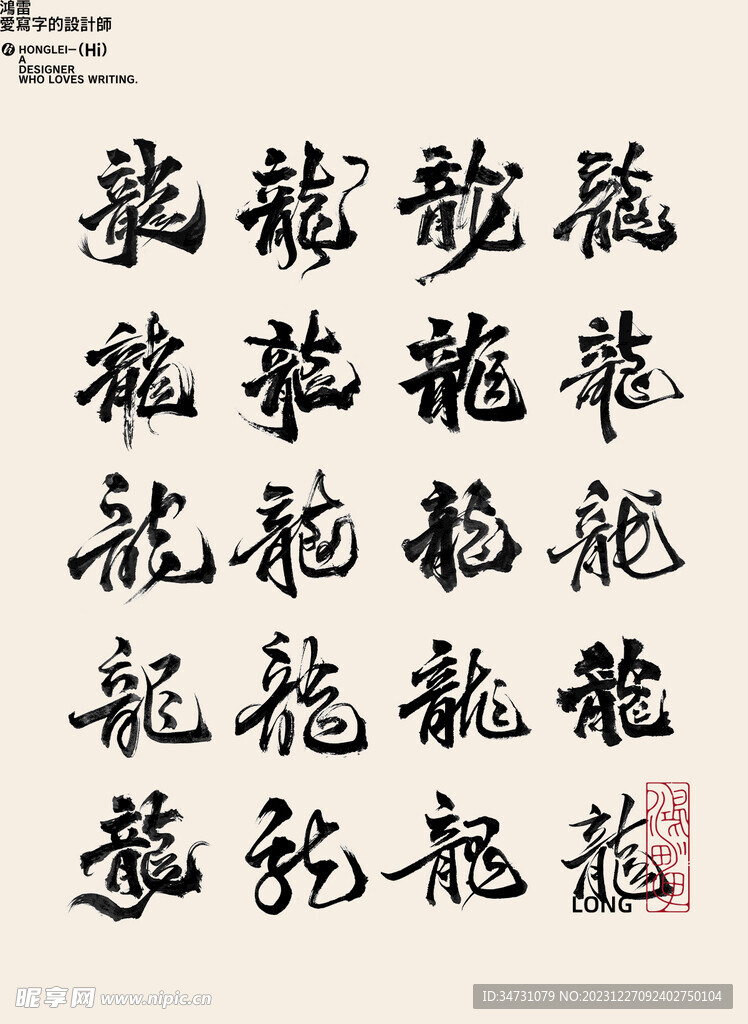 鴻雷
愛寫字的設計師
HONGLEI—(Hi)
A
DESIGNER
WHO LOVES WRITING.
龍 龍 龍 龍
龍 龍 龍 龍
龍 龍 龍 龍
龍 龍 龍 龍
龍 龍 龍 龍
LONG
昵享网 www.nipic.cn
ID:34731079 NO:20231227092402750104